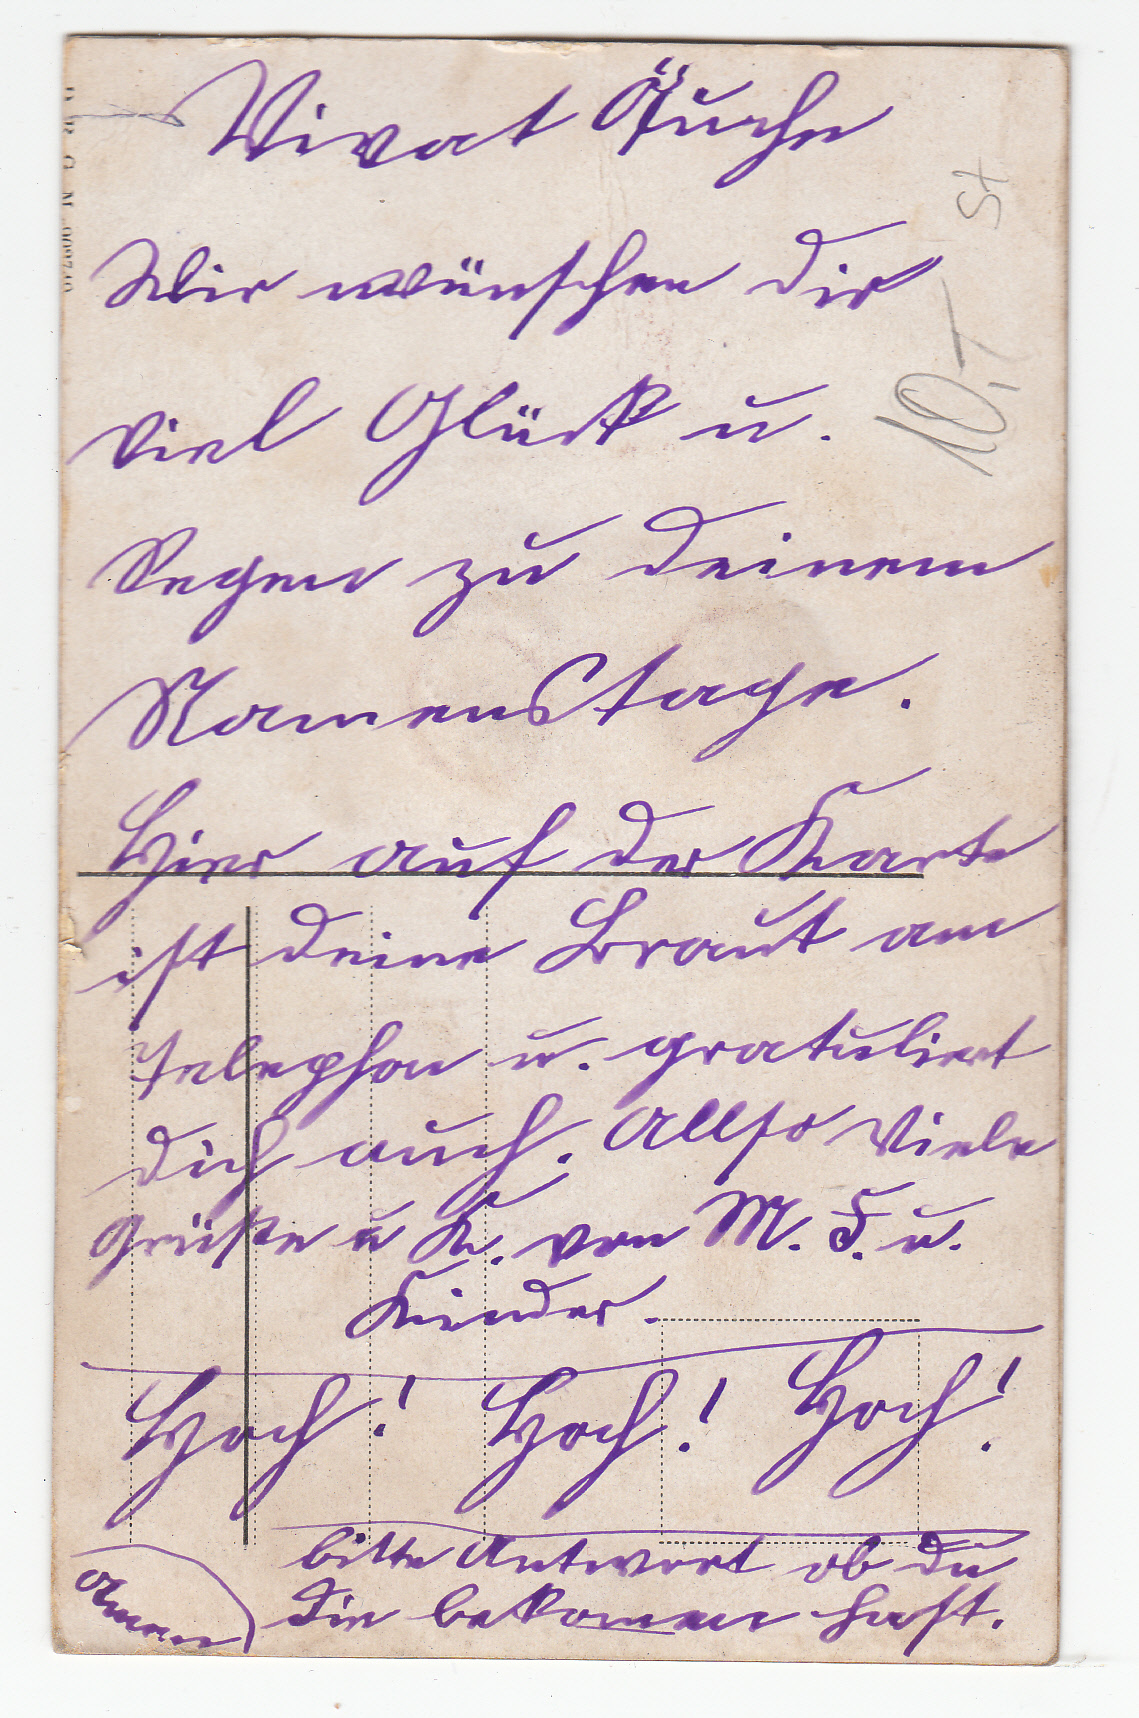 Vivat
Wir wünschen dir
viel Glück u.
Segen zu deinem
Namenstage.
Hier auf der Karte
ist deine Braut am
Telephon u. gratuliert
dich auch. Allso viele
Grüße u K. von M. F. u.
Kinder.
Hoch! Hoch! Hoch!
bitte Antwort ob du
die bekommen hast.
Amen
10,-
St